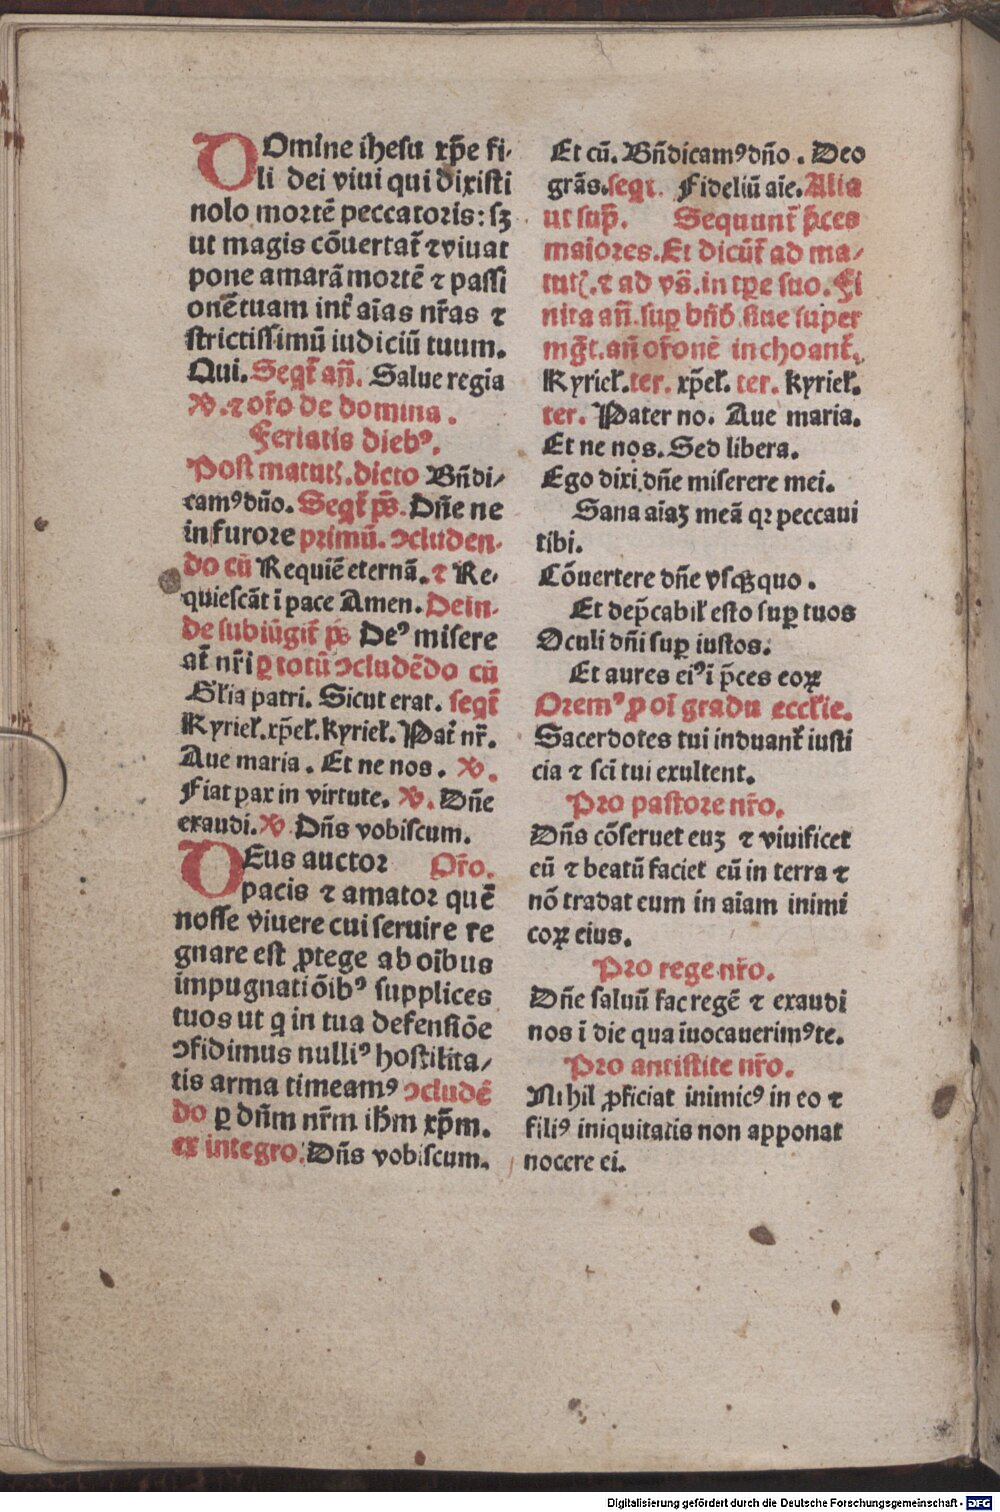 DOmine ihesu xp̄e fi-
li dei viui qui dixisti
nolo mortē peccatoris: sꝫ
ut magis cōuertat᷑ ⁊viuat
pone amarā mortē ⁊ passi
onē tuam int᷑ aīas nr̄as ⁊
strictissimū iudiciū tuum.
Qui. Seqt᷑ an̄. Salue regīa
℣. ⁊ or̄o de domina.
Feriatis dieb⁹.
Post matut᷑. dicto Bn̄di-
cam⁹ dn̄o. Seqt᷑ ps̄. Dn̄e ne
in furore primū. ↄcluden-
do cū Requiē eternā. ⁊ Re-
quiescāt ī pace Amen. Dein-
de subiūgit᷑ ps̄ De⁹ misere
at᷑ nr̄i ꝑ totū ↄcludēdo cū
Gl̄ia patri. Sicut erat. seqt᷑
Kyriel̄. xp̄el̄. kyriel̄. Pat᷑ nr̄.
Aue maria. Et ne nos. ℣.
Fiat pax in virtute. ℣. Dn̄e
exaudi. ℣ Dn̄s vobiscum.
DEus auctor Or̄o.
pacis ⁊ amator quē
nosse viuere cui seruire re
gnare est ꝓtege ab oībus
impugnatiōib⁹ supplices
tuos ut q̄ in tua defensiōe
ↄfidimus nulli⁹ hostilita-
tis arma timeam⁹ ↄcludē
do ꝑ dn̄m nr̄m ih̄m xp̄m.
ex integro. Dn̄s vobiscum.
Et cū. Bn̄dicam⁹ dn̄o. Deo
grās. seqt᷑. Fideliū aīe. Alia
ut sup̄. Sequunt᷑ p̄ces
maiores. Et dicūt᷑ ad ma-
tut᷑. ⁊ ad vs̄. in tꝑe suo. Fi
nita an̄. suꝑ bn̄d̄. siue super
mḡt. an̄ or̄onē inchoant᷑.
Kyriel̄. ter. xp̄el̄. ter. kyriel̄.
ter. Pater no. Aue maria.
Et ne nos. Sed libera.
Ego dixi dn̄e miserere mei.
Sana aīaꝫ meā qꝛ peccaui
tibi.
Cōuertere dn̄e vsqꝫ quo.
Et dep̄cabil̄ esto suꝑ tuos
Oculi dn̄i suꝑ iustos.
Et aures ei⁹ ī p̄ces eoꝝ
Orem⁹ ꝓ oī gradu eccl̄ie.
Sacerdotes tui induant᷑ iusti
cia ⁊ sc̄i tui exultent.
Pro pastore nr̄o.
Dn̄s cōseruet euꝫ ⁊ viuificet
eū ⁊ beatū faciet eū in terra ⁊
nō tradat eum in aīam inimi
coꝝ eius.
Pro rege nr̄o.
Dn̄e saluū fac regē ⁊ exaudi
nos ī die qua īuocauerim⁹ te.
Pro antistite nr̄o.
Nihil ꝓficiat inimic⁹ in eo ⁊
fili⁹ iniquitatis non apponat
nocere ei.
Digitalisierung gefördert durch die Deutsche Forschungsgemeinschaft - DFG